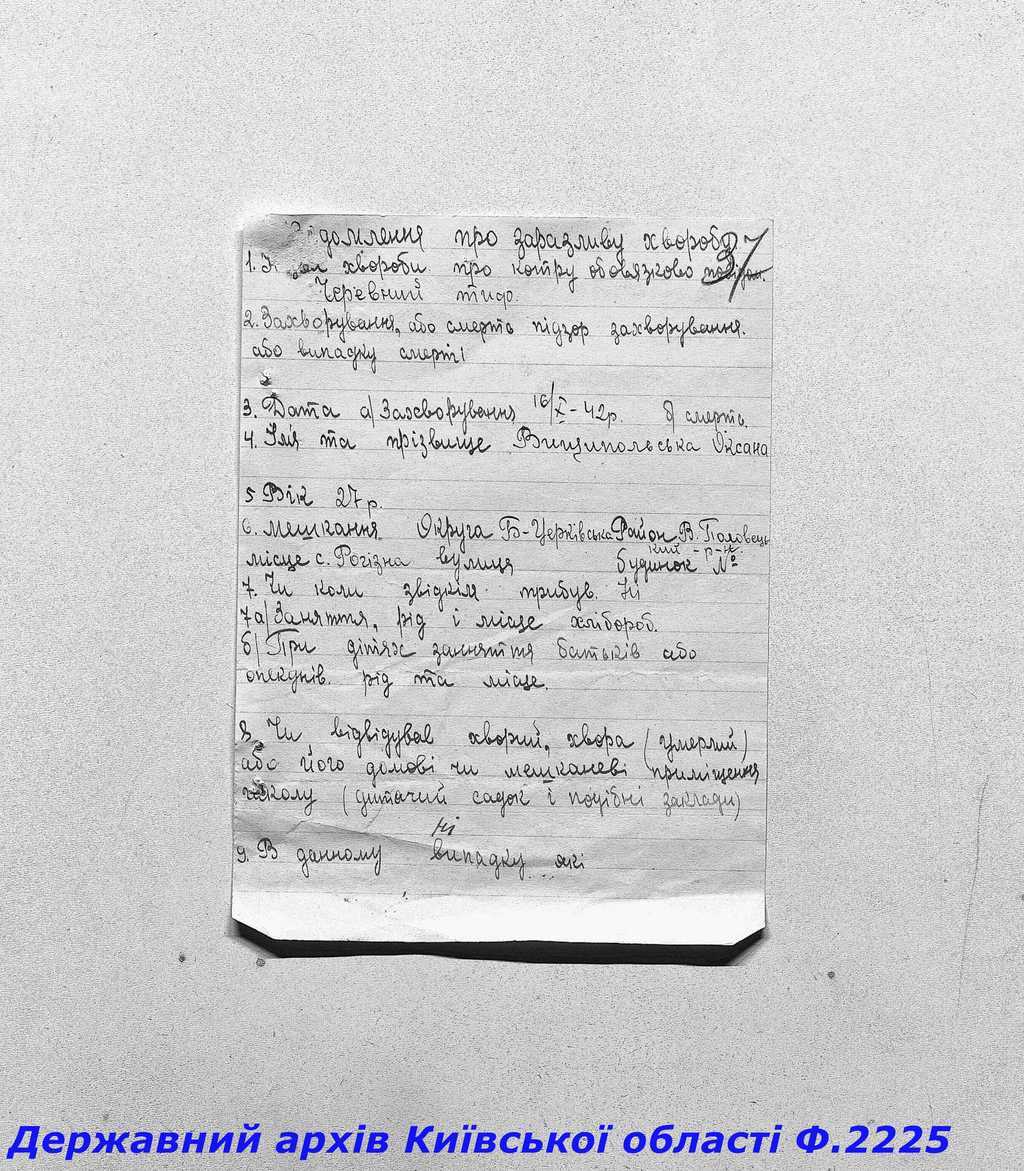 відомлення про заразливу хворобу
37
1. хвороби про котру обовязково повідом.
Черевний тиф.
2. Захворування, або смерть підзор захворування.
або випадку смерті
3. Дата а/ Захворування 16/X-42р. б) смерть.
4. Імя та прізвище Вищипольська Оксана
5 Вік 27 р.
6. мешкання Округа Б-Церківська Район В. Половець
кий - р-н.
місце с. Рогізна вулиця будинок №
7. Чи коли звідкіля прибув. Ні
7а/ Заняття, рід і місце хлібороб.
б/ При дітях заняття батьків або
опекунів. рід та місце.
8. Чи відвідував хворий, хвора (умерлий)
або його домові чи мешканеві приміщення
школу (дитячий садок і подібні заклади)
Ні
9. В данному випадку які
Державний архів Київської області Ф.2225